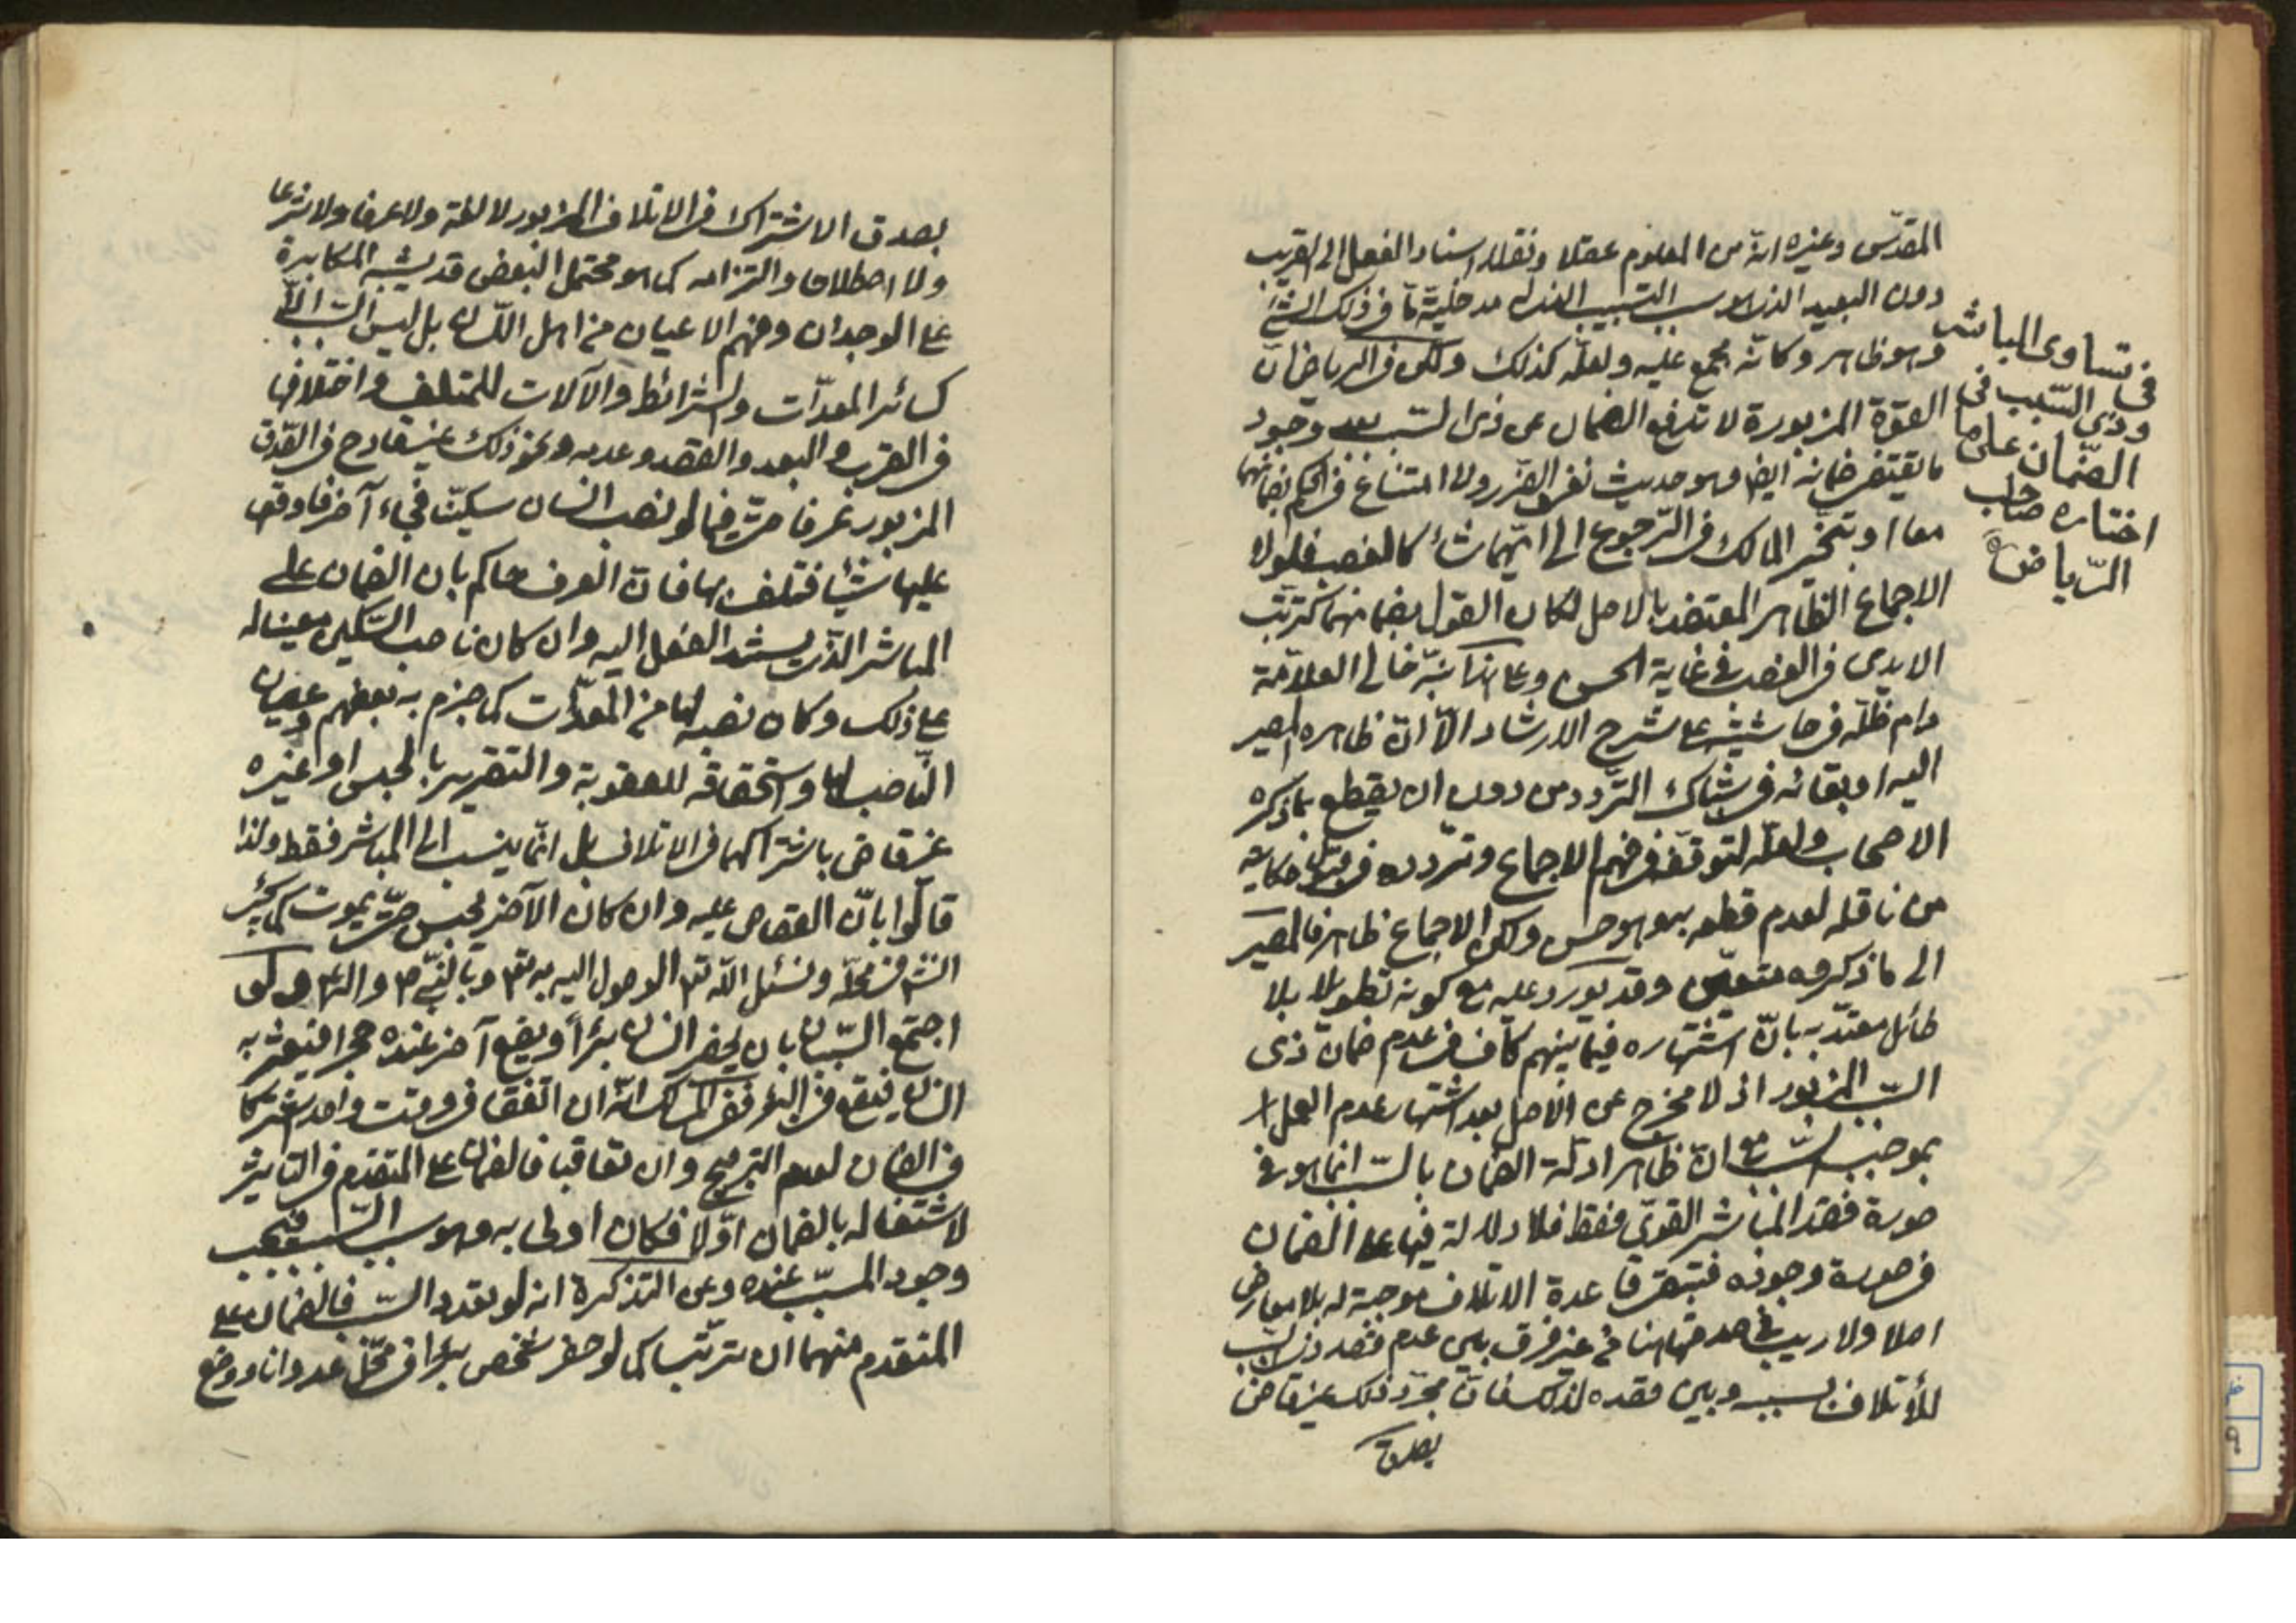 المقدّس وغيره انّه من المعلوم عقلا ونقلا اسناد الفعل الى القريب
دون البعيد الذى هو سبب السبب لمدخليّة مّا فى ذلك الشئ
وهو ظاهر وكانّه مجمع عليه ولعلّه كذلك ولكن فى الرياض انّ
القوّة المزبورة لا تدفع الضمان عن ذى السبب بعد وجود
ما يقتضى ضمانه ايضا وهو حديث نفى الضرر ولا امتناع فى الحكم بضمانهما
معا وتخيّر المالك فى الرّجوع الى ايّهما شاء كالغصب فلولا
الاجماع الظاهر المعتضد بالاصل لكان القول بضمانهما كترتّب
الايدى فى الغصب فى غاية الحسن وعلى هذا نبّه خالى العلاّمة
دام ظلّه فى حاشيته على شرح الارشاد الاّ انّ ظاهره المصير
اليه او بقائه فى شباك التّردد من دون ان يقطع بما ذكره
الاصحاب ولعلّه لتوقّفه فى فهم الاجماع وتردّده فى قبول حكايته
من ناقله لعدم قطعه به وهو حسن ولكن الاجماع ظاهر فالمصير
الى ما ذكروه متعيّن وقد يورد عليه مع كونه تطويلا بلا
طائل معتدّ به بانّ اشتهاره فيما بينهم كاف فى عدم ضمان ذى
السبب المزبور اذ لا مخرج عن الاصل بعد اشتهار عدم العمل
بموجب السبب مع انّ ظاهر ادلّة الضمان بالسبب انّما هو فى
صورة فقد المباشر القوىّ فقط فلا دلالة فيها على الضمان
فى صورة وجوده فتبقى قاعدة الاتلاف موجبة له بلا معارض
اصلا ولا ريب فى صدقها هنا من غير فرق بين عدم قصد ذى السبب
للأتلاف بسببه وبين قصده لذلك فانّ مجرّد ذلك غير قاض
بصدق
فى تساوى المباشر
وذى السّبب فى
الضّمان على ما
اختاره صاحب
الرّياض ره
بصدق الاشتراك فى الاتلاف المزبور لا لغة ولا عرفا ولا شرعا
ولا اصطلاحا والتزامه كما هو محتمل البعض قد يشبه المكابرة
على الوجدان وفهم الاعيان من اهل اللّسان بل ليس السّبب الاّ
كسائر المعدّات والشرائط والآلات للمتلف واختلافها
فى القرب والبعد والقصد وعدمه ونحو ذلك غير قادح فى الصّدق
المزبور عرفا حتّى فيما لو نصب انسان سكيّنا فجاء آخر فاوقع
عليها شيئا فتلف بها فانّ العرف حاكم بان الضمان على
المباشر الّذى يستند الفعل اليه وان كان ناصب السّكين معينا له
على ذلك وكان نصبه لها من المعدّات كما جزم به بعضهم وعصيان
النّاصب لها واستحقاقه للعقوبة والتعزير بالحبس او غيره
غير قاض باشتراكهما فى الاتلاف بل انّما ينسب الى المباشر فقط ولذا
قالوا بانّ القصاص عليه وان كان الآخر يحبس حتّى يموت كما يجئ
انش فى محلّه ونسئل اللّه تع الوصول اليه به تع وبالنّبى ص واله ع ولو
اجتمع السّببان بان يحفر انسان بئراً ويضع آخر عنده حجرا فيعثر به
انسان فيقع فى البئر ففى المسالك انّه ان اتّفقا فى وقت واحد اشتركا
فى الضمان لعدم الترجيح وان تعاقبا فالضمان على المتقدّم فى التاثير
لاشتغاله بالضمان اوّلا فكان اولى به وهو سبب السّبب فيجب
وجود المسبّب عنده وعن التذكرة انه لو تعدد السّبب فالضمان على
المتقدم منهما ان ترتّبا كما لو حفر شخص بئرا فى محّل عدوانا ووضع